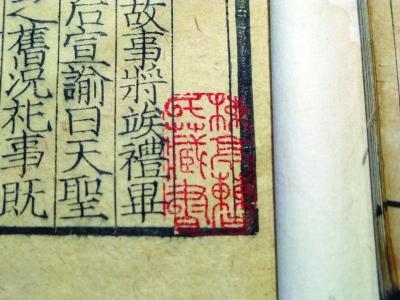 楝亭曹
氏藏書
故事將竢禮畢
后宣諭曰天聖
之舊況祀事既